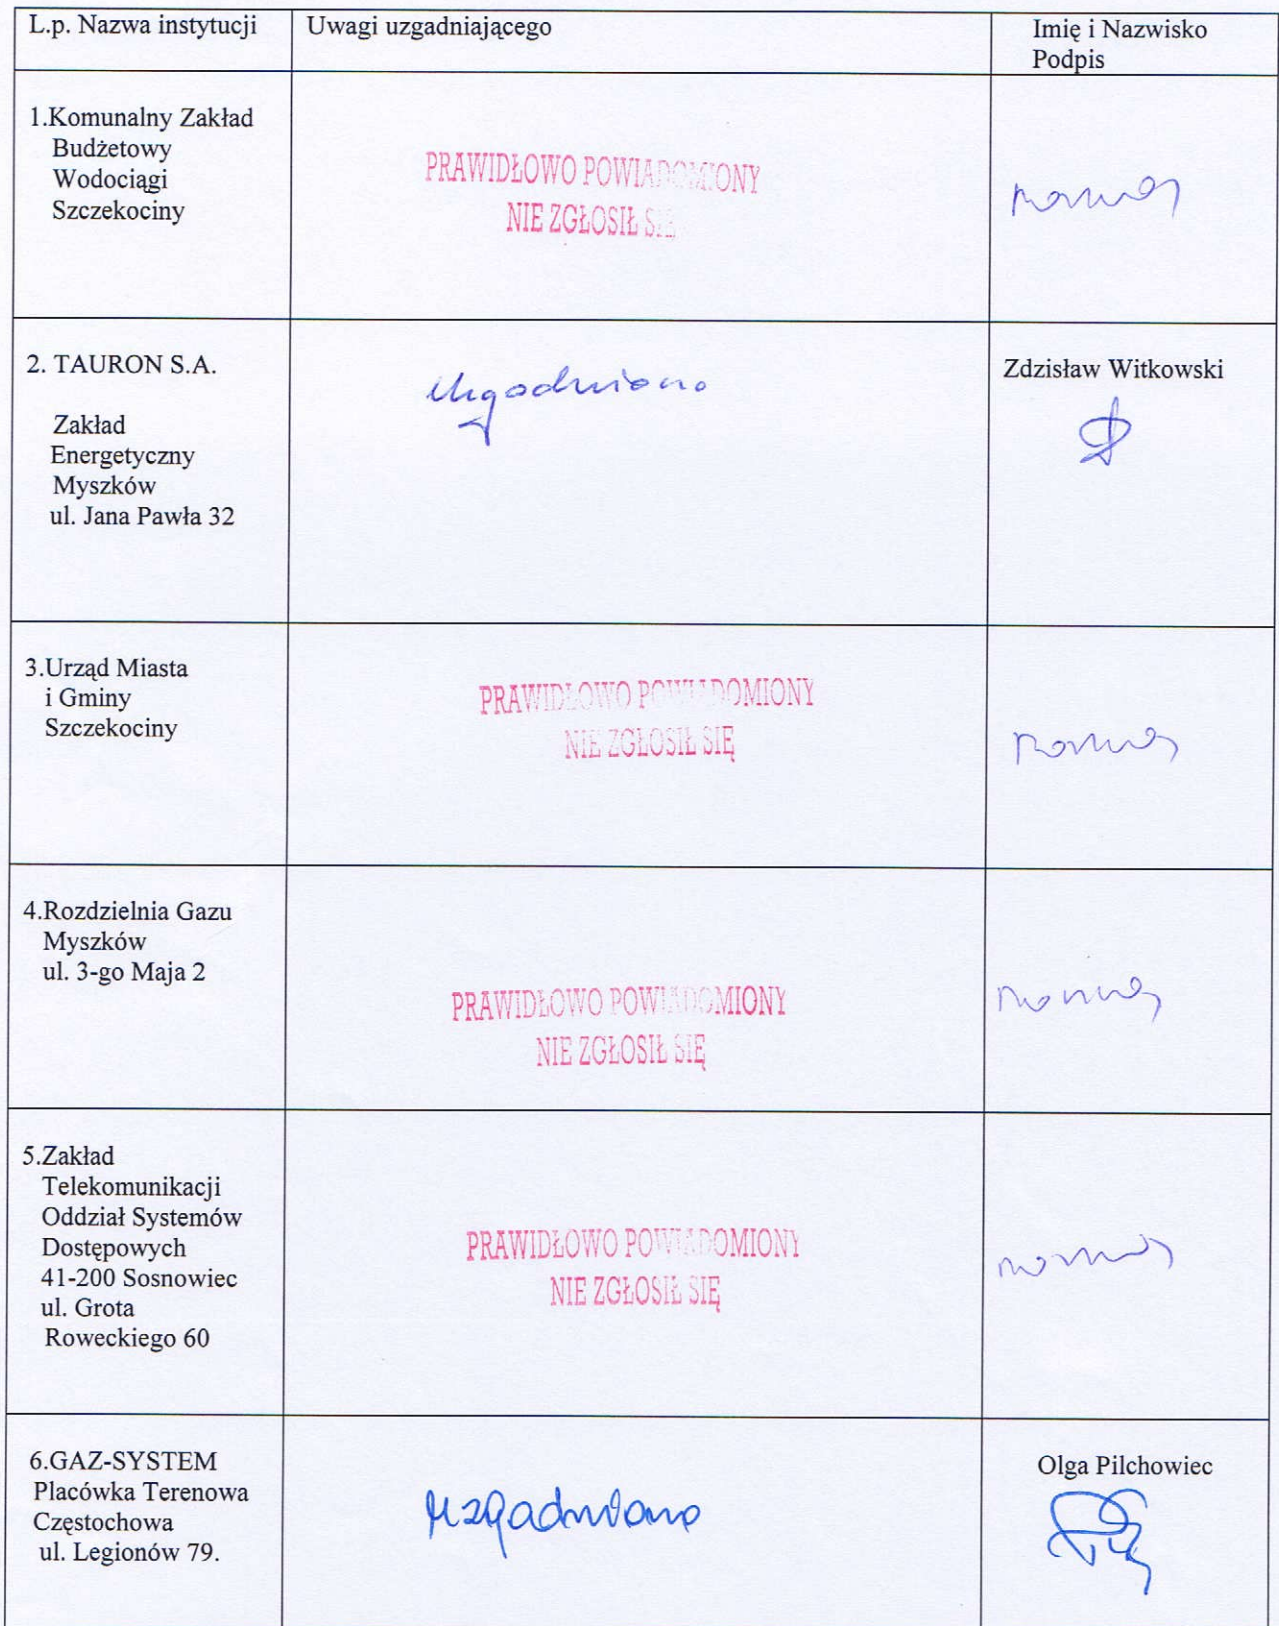 L.p. Nazwa instytucji
Uwagi uzgadniającego
Imię i Nazwisko
Podpis
1.Komunalny Zakład
Budżetowy
Wodociągi
Szczekociny
PRAWIDŁOWO POWIADOMIONY
NIE ZGŁOSIŁ SIĘ
2. TAURON S.A.
Zakład
Energetyczny
Myszków
ul. Jana Pawła 32
uzgodniono
Zdzisław Witkowski
3.Urząd Miasta
i Gminy
Szczekociny
PRAWIDŁOWO POWIADOMIONY
NIE ZGŁOSIŁ SIĘ
4.Rozdzielnia Gazu
Myszków
ul. 3-go Maja 2
PRAWIDŁOWO POWIADOMIONY
NIE ZGŁOSIŁ SIĘ
5.Zakład
Telekomunikacji
Oddział Systemów
Dostępowych
41-200 Sosnowiec
ul. Grota
Roweckiego 60
PRAWIDŁOWO POWIADOMIONY
NIE ZGŁOSIŁ SIĘ
6.GAZ-SYSTEM
Placówka Terenowa
Częstochowa
ul. Legionów 79.
uzgadniano
Olga Pilchowiec